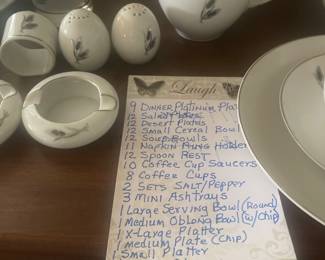 Laugh
9 DINNER PLATINUM Pla
12 Salad Plates
12 Desert Plates
12 Small Cereal Bowl
12 Soup Bowls
11 NAPKIN RING Holder
12 SPOON REST
10 Coffee Cup SAUCERS
8 Coffee Cups
2 SETS SALT/PEPPER
3 MINI AshtrAys
1 LARge SERVING Bowl (Round)
1 Medium OBLONG Bowl (w/Chip)
1 X-LARge PlAtter
1 Medium PlAte (CHIP)
1 Small Platter